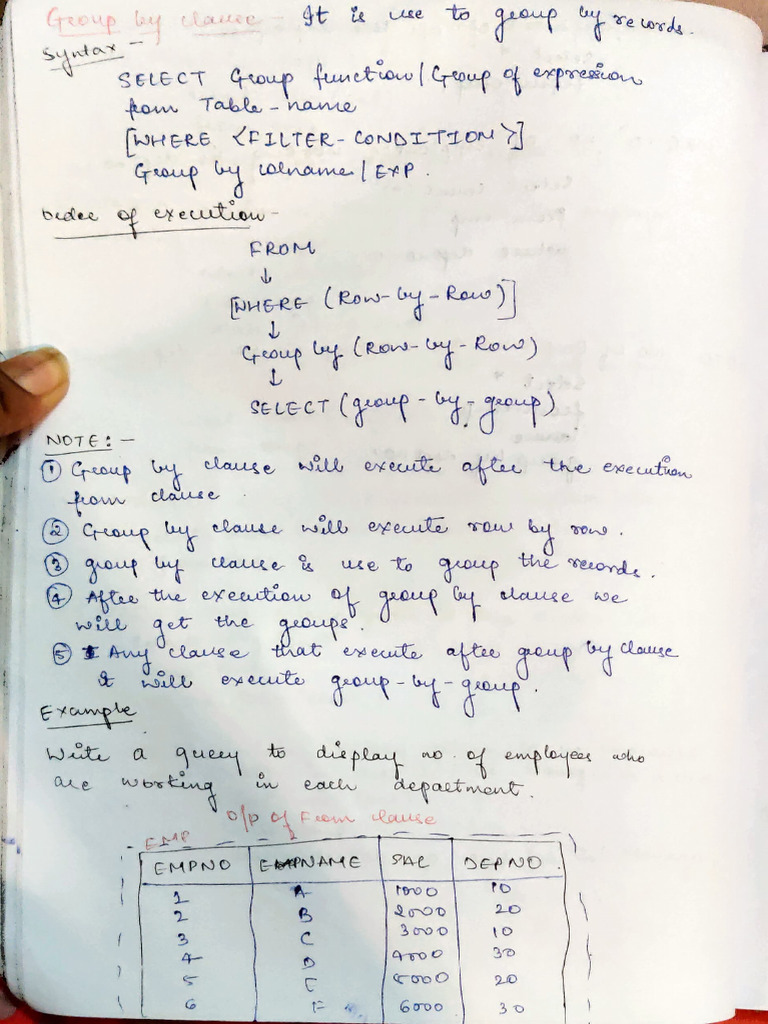 Group by clause - It is use to group by records.
Syntax -
SELECT Group function / Group of expression
from Table - name
[WHERE <FILTER - CONDITION>]
Group by colname / EXP.
Order of execution -
FROM
↓
[WHERE (Row-by-Row)]
↓
Group by (Row-by-Row)
↓
SELECT (group - by - group)
NOTE: -
① Group by clause will execute after the execution
from clause
② Group by clause will execute row by row.
③ group by clause is use to group the records.
④ After the execution of group by clause we
will get the groups.
⑤ Any clause that execute after group by clause
it will execute group-by-group.
Example
Write a query to display no. of employees who
are working in each department.
O/P of From clause
EMP
EMPNO EMPNAME SAL DEPNO
1 A 1000 10
2 B 2000 20
3 C 3000 10
4 D 4000 30
5 E 5000 20
6 F 6000 30